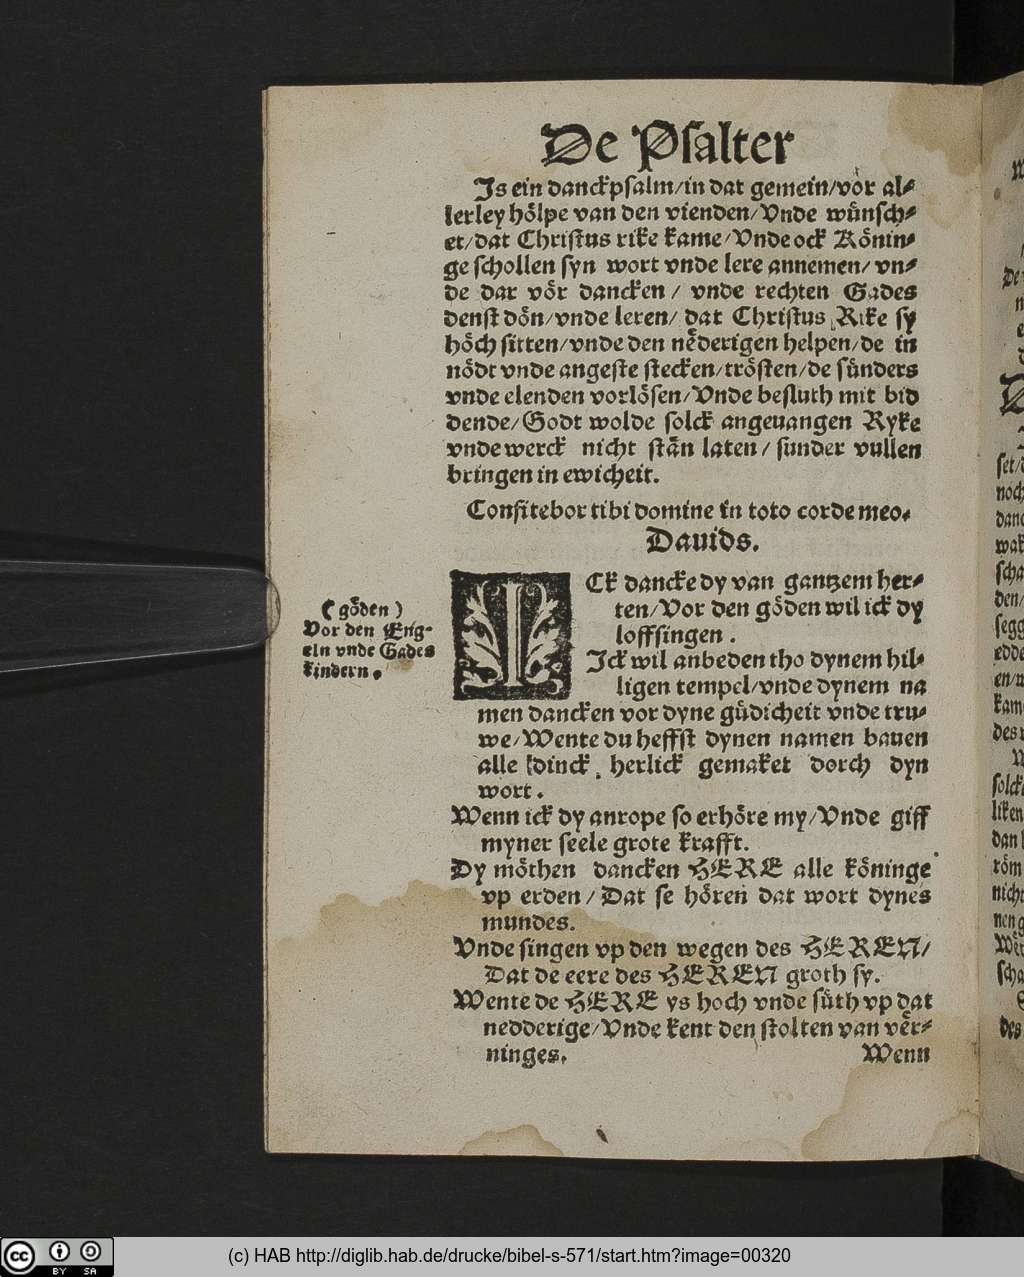 De Psalter
Js ein danckpsalm/in dat gemein/vör al⸗
lerley hölpe van den vienden/Vnde wünsch⸗
et/dat Christus rike kame/Vnde ock Könin⸗
ge schollen syn wort vnde lere annemen/vn⸗
de dar vör dancken/ vnde rechten Gades
denst dön/vnde leren/ dat Christus Rike sy
höch sitten/vnde den nedderigen helpen/de in
nödt vnde angeste stecken/trösten/de sünders
vnde elenden vorlösen/Vnde besluth mit bid
dende/Godt wolde solck angeuangen Ryke
vnde werck nicht stän laten/ sunder vullen
bringen in ewicheit.
Confitebor tibi domine in toto corde meo.
Dauids.
ICk dancke dy van gantzem her⸗
ten/Vor den göden wil ick dy
loffsingen.
Jck wil anbeden tho dynem hil⸗
ligen tempel/vnde dynem na
men dancken vor dyne güdicheit vnde tru⸗
we/Wente du heffst dynen namen bauen
alle dinck, herlick gemaket dorch dyn
wort.
Wenn ick dy anrope so erhöre my/Vnde giff
myner seele grote krafft.
Dy möthen dancken HERE alle köninge
vp erden/Dat se hören dat wort dynes
mundes.
Vnde singen vp den wegen des HEREN/
Dat de eere des HEREN groth sy.
Wente de HERE ys hoch vnde süth vp dat
nedderige/Vnde kent den stolten van ver⸗
ninges.
Wenn
(göden)
Vor den Eng⸗
eln vnde Gades
kindern.
(c) HAB http://diglib.hab.de/drucke/bibel-s-571/start.htm?image=00320
cc
BY SA